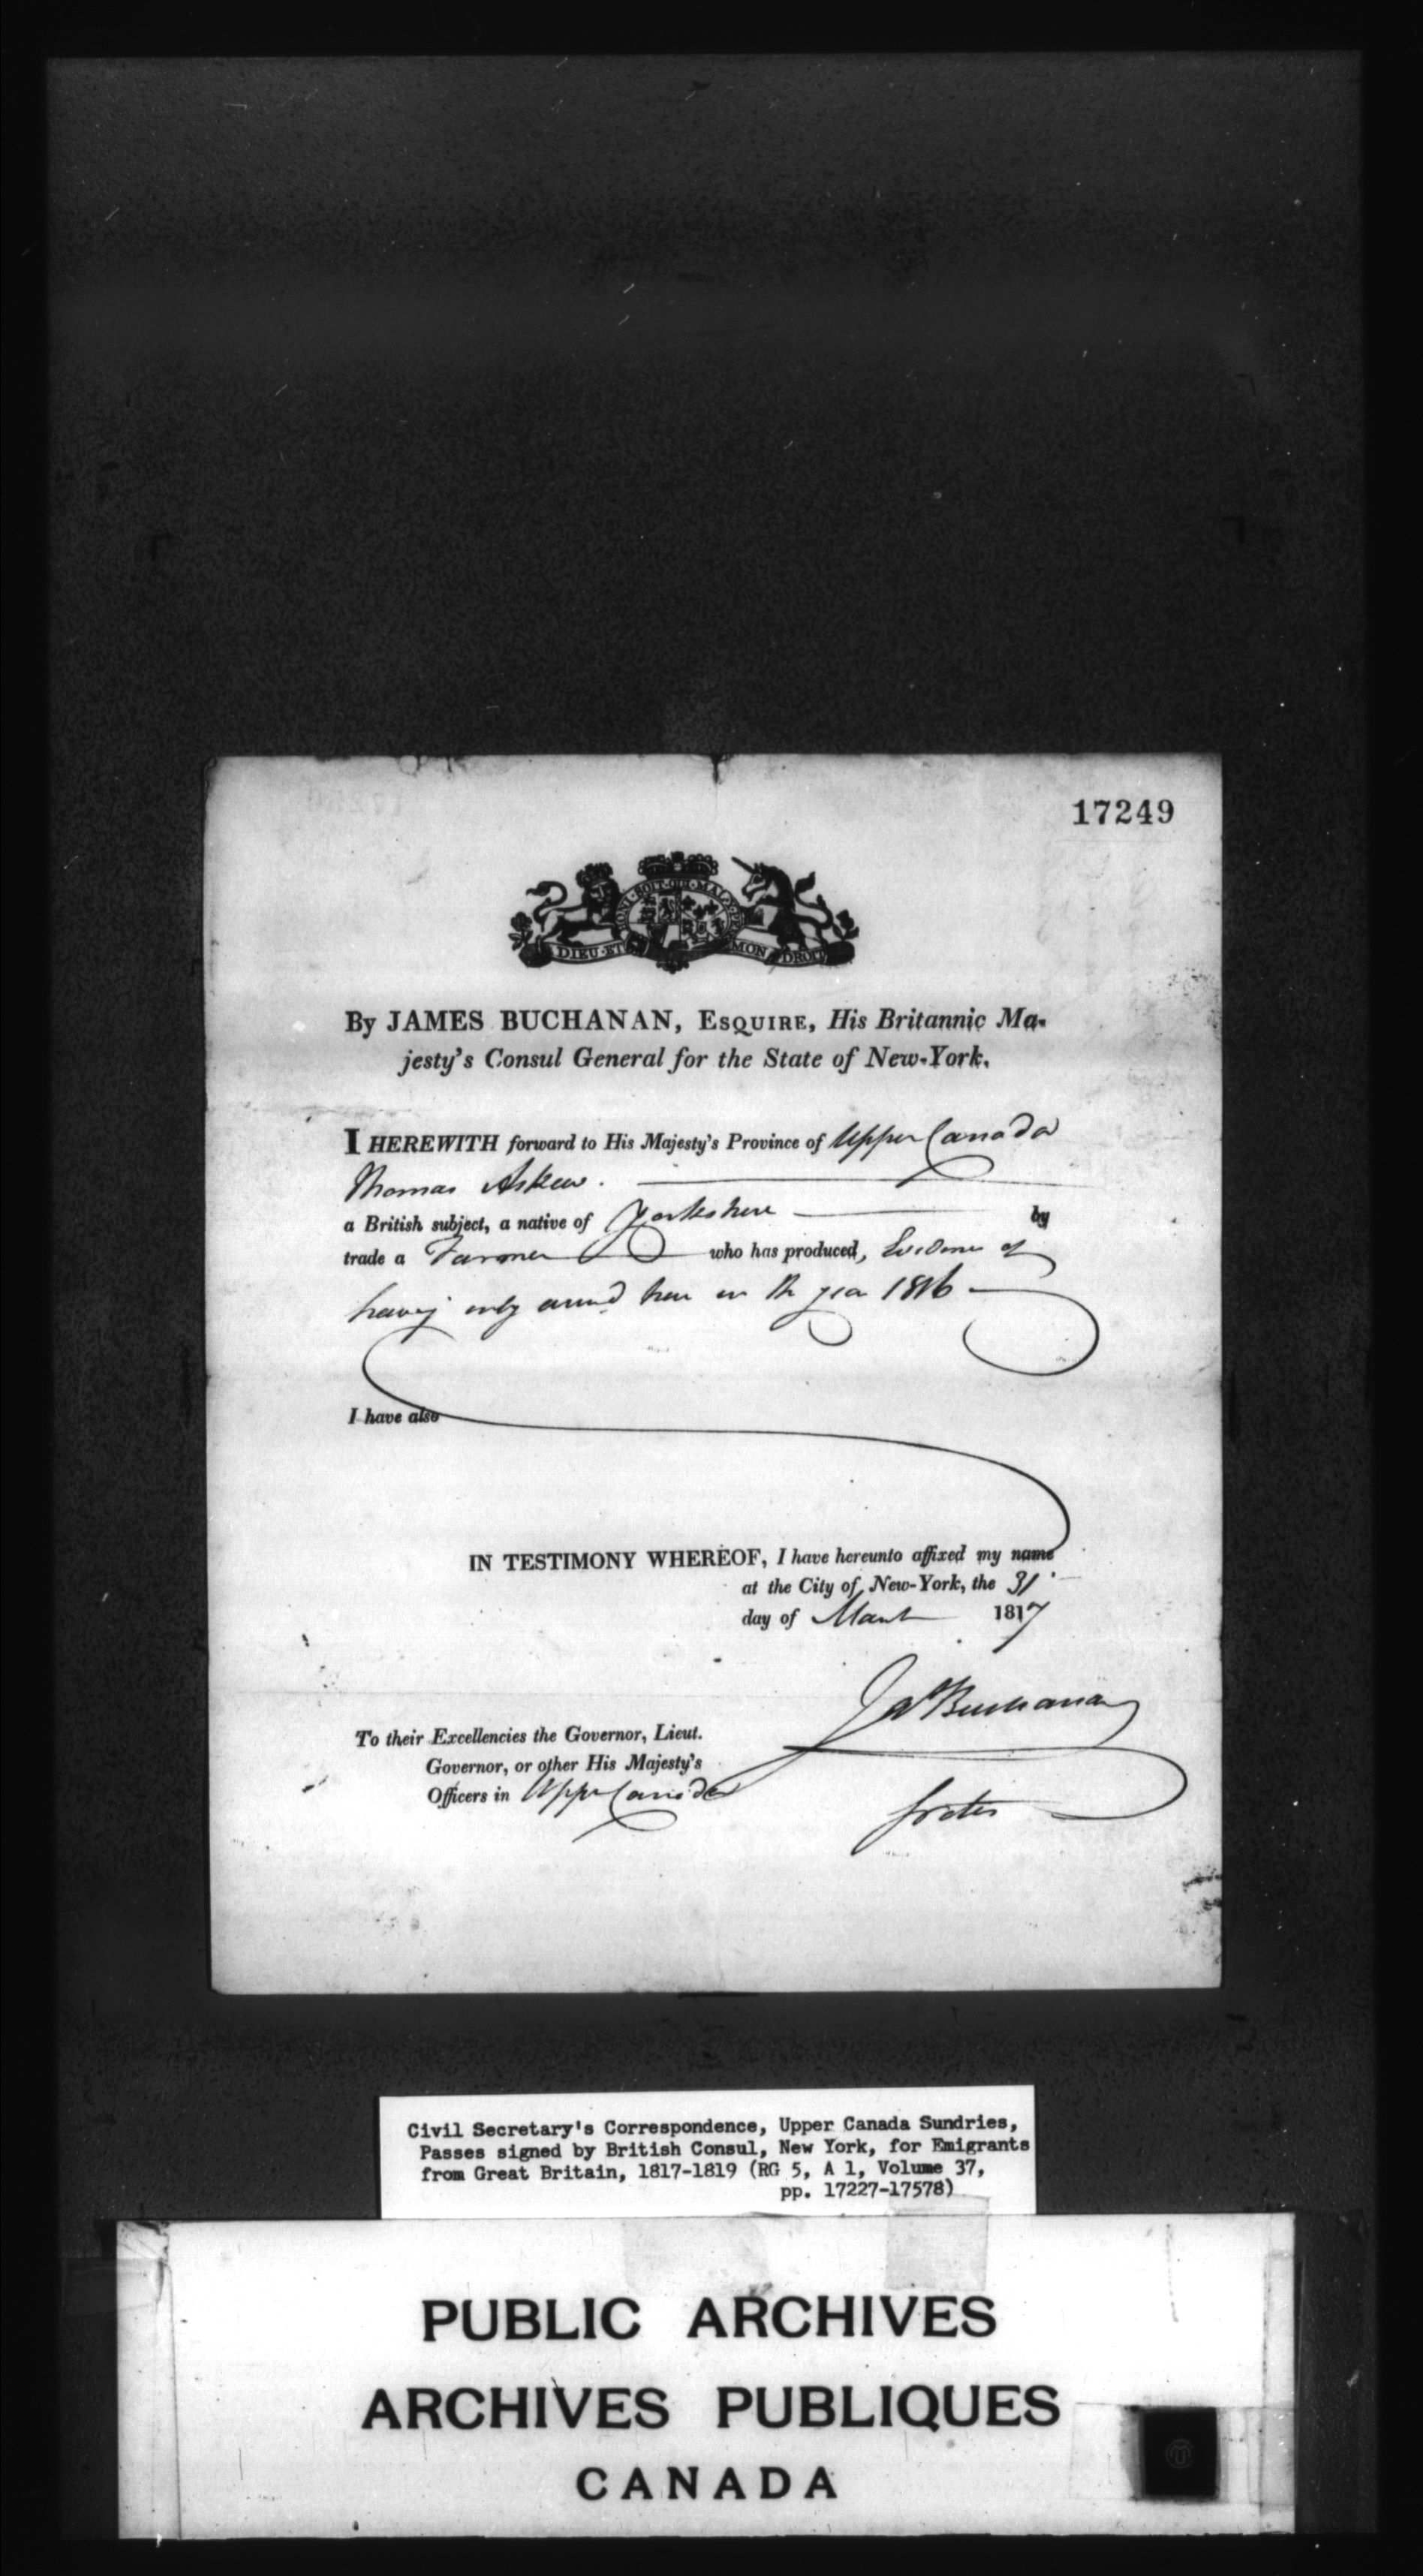 17249
HONI·SOIT·QUI·MAL·Y·P
DIEU·ET MON DROIT
By JAMES BUCHANAN, ESQUIRE, His Britannic Ma-
jesty's Consul General for the State of New-York.
I HEREWITH forward to His Majesty's Province of Upper Canada
Thomas Askew.
a British subject, a native of Yorkshire by
trade a Farmer who has produced, Evidence of
having only arrived here in the year 1816
I have also
IN TESTIMONY WHEREOF, I have hereunto affixed my name
at the City of New-York, the 31
day of March 1817
Jas Buchanan
To their Excellencies the Governor, Lieut.
Governor, or other His Majesty's
Officers in Upper Canada
Civil Secretary's Correspondence, Upper Canada Sundries,
Passes signed by British Consul, New York, for Emigrants
from Great Britain, 1817-1819 (RG 5, A 1, Volume 37,
pp. 17227-17578)
PUBLIC ARCHIVES
ARCHIVES PUBLIQUES
CANADA